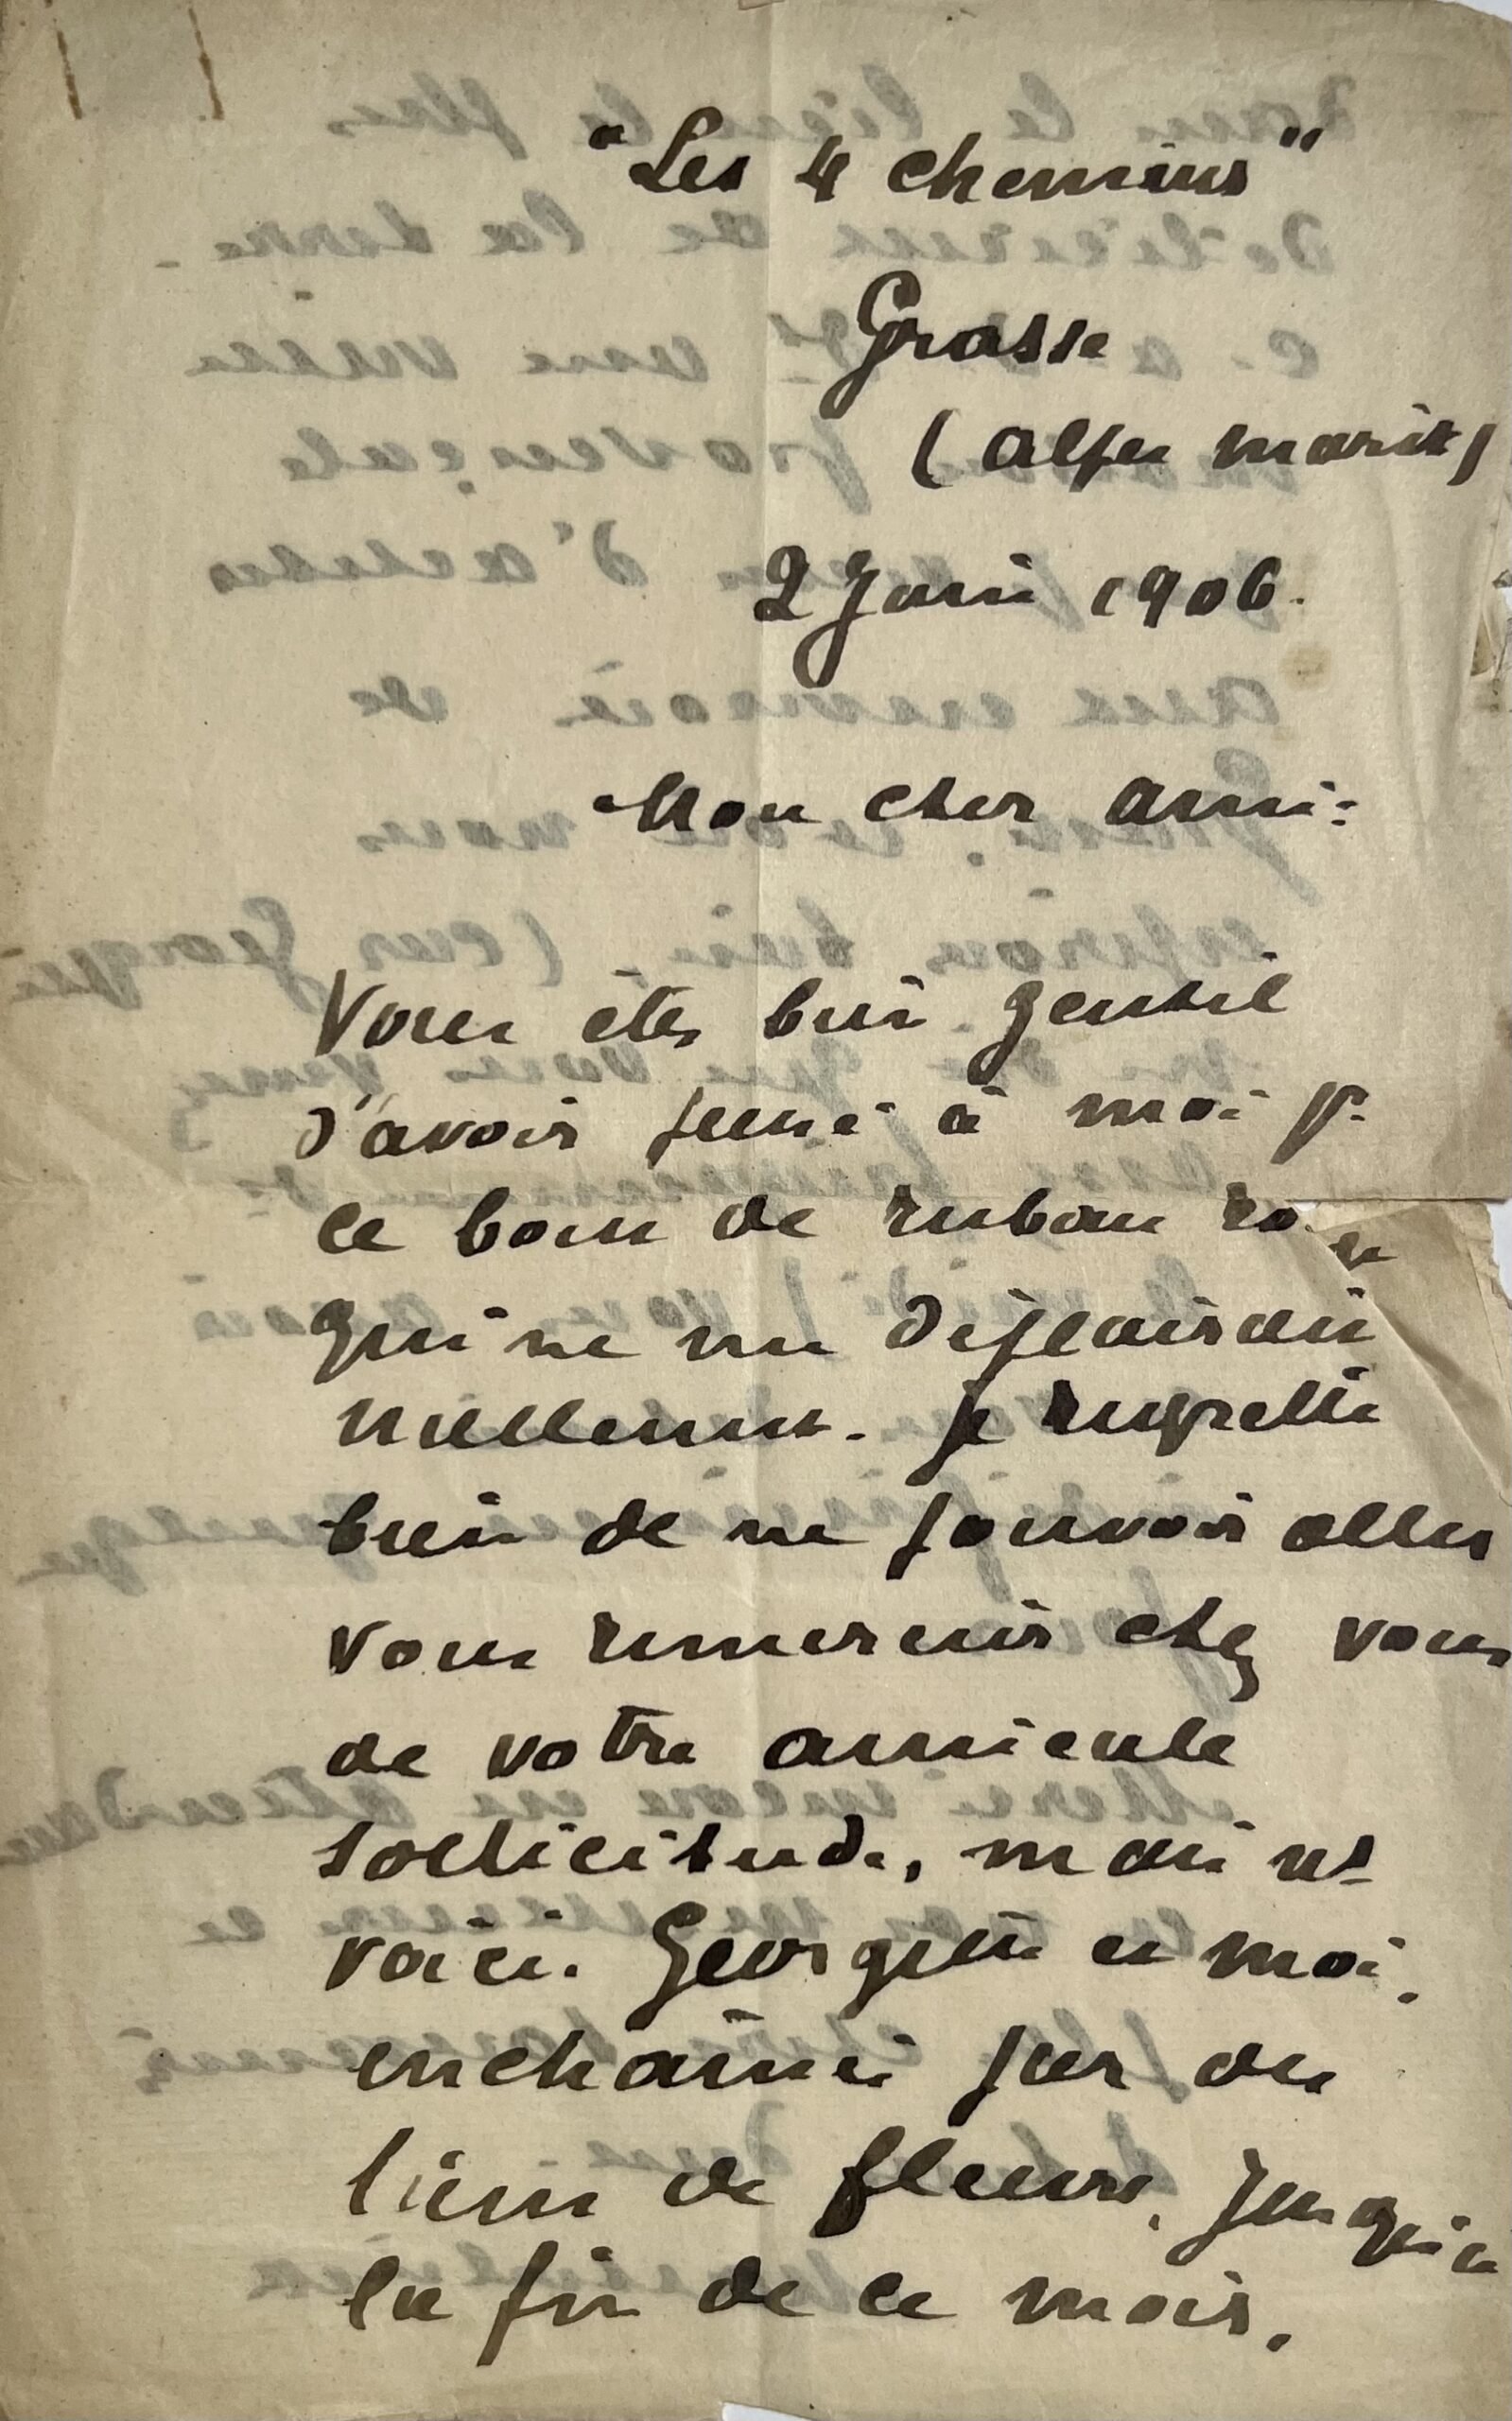 "Les 4 chemins"
Grasse
(Alpes marites)
2 Juin 1906.
Mon cher ami:
Vous êtes bien gentil
d'avoir pensé à moi pr
ce bout de ruban
qui ne me déplairait
nullement. Je regrette
bien de ne pouvoir aller
vous remercier chez vous
de votre amicale
sollicitude, mais ns
voici. Georgette et moi,
enchaînés par des
liens de fleurs, jusqu'à
la fin de ce mois,